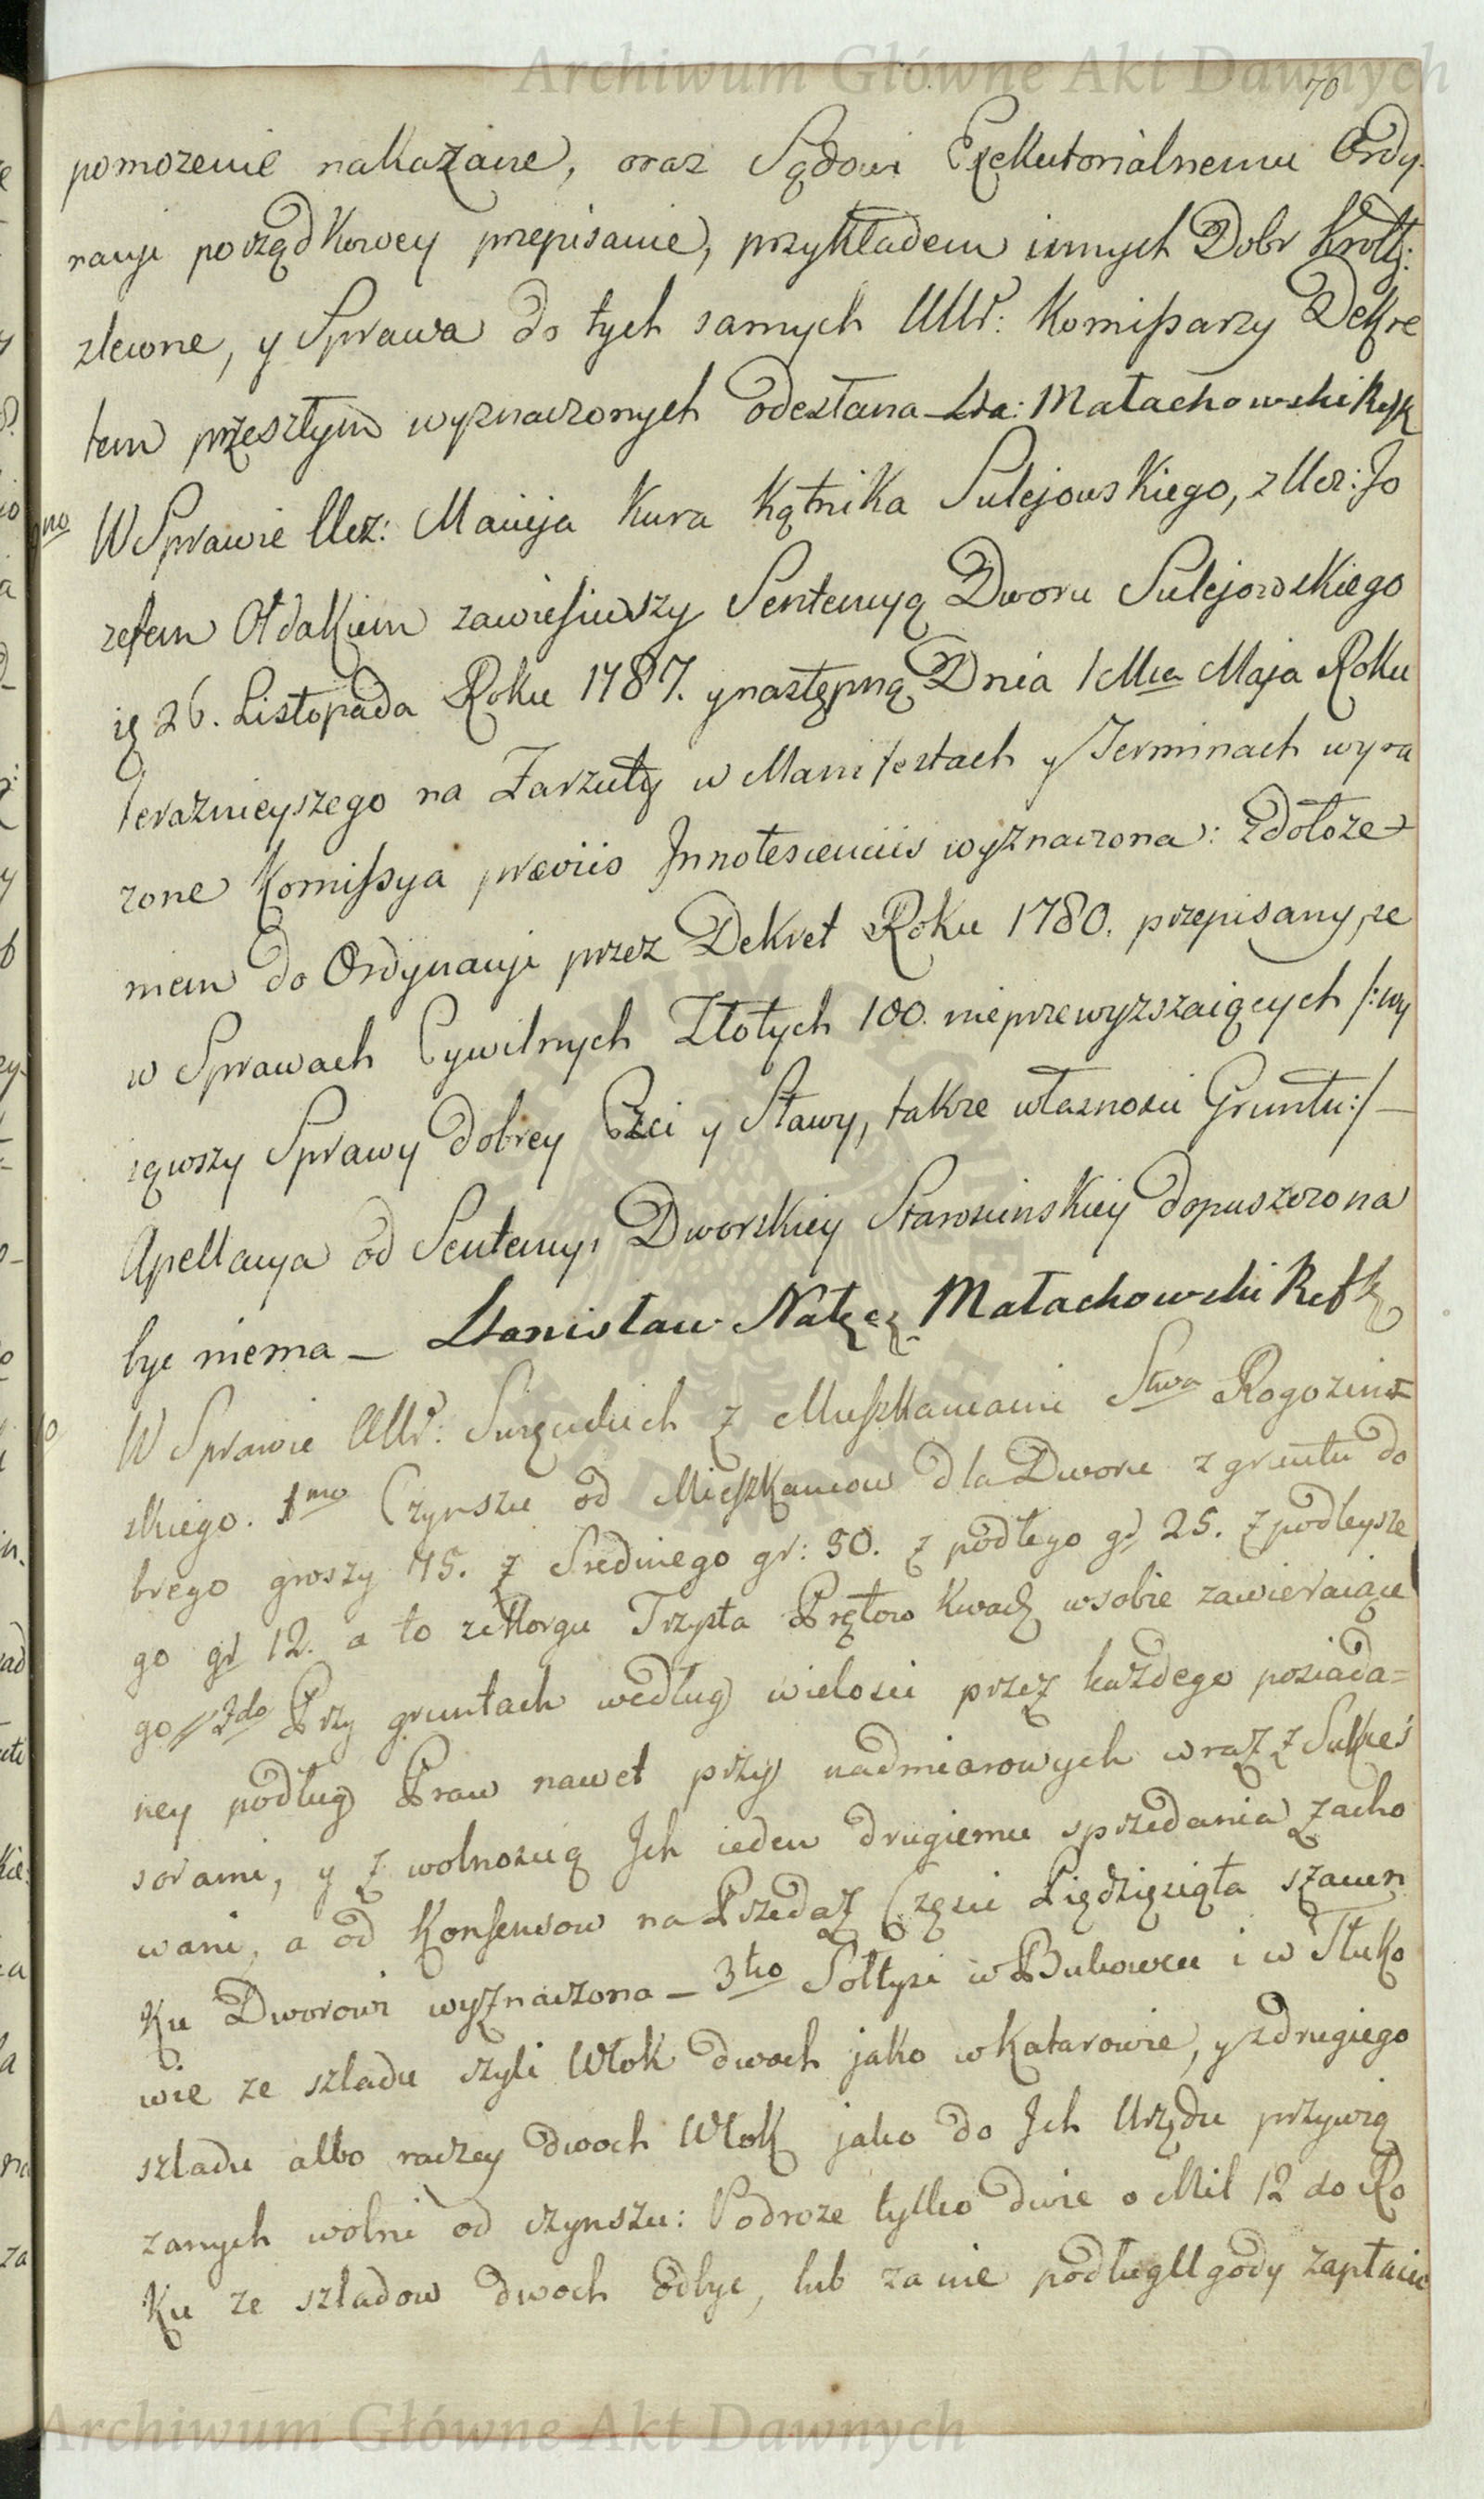 Archiwum Główne Akt Dawnych
70
pomozenie nakazane, oraz Sądowi Exekutorialnemu Ordy-
nacyi porządkowey przepisanie, przykładem innych Dobr Krolł:
zlecone, y Sprawa do tych samych UUr: Komissarzy Dekre
tem przeszłym wyznaczonych odesłana Sta: Małachowski
W Sprawie Ucz: Macieja Kura Kątnika Sulejowskiego, z Ucz: Jo
zefem Ołdakiem zawiesiwszy Sentencyą Dworu Sulejowskiego
ię 26. Listopada Roku 1787. y następną Dnia 1 Mca Maja Roku
teraznieyszego na Zarzuty w Manifestach y Terminach wyra
zone Komissya præviis Innotescenciis wyznaczona: z dołoze-
niem do Ordynacyi przez Dekret Roku 1780. przepisany, ze
w Sprawach Cywilnych Złotych 100. nieprzewyzszaiących /: wy
iąwszy Sprawy dobrey Czci y Sławy, takze własnosci Gruntu :/ —
Apellacya od Sentencyi Dworskiey Starościnskiey dopuszczona
byc niema — Stanisław Nałęcz Małachowski Ref
W Sprawie UUr: z Mieszkancami Stwa Rogozins
skiego. 1mo Czynszu od Mieszkancow dla Dworu z gruntu do
brego groszy 75. z Sredniego gr: 50. z podłego gr 25. z podleysze
go gr 12. a to z Morgu Trzysta Prętow Kwad w sobie zawieraiące
go // 2do Przy gruntach według wielosci przez kazdego posiada=
ney podług Praw nawet przy nadmiarowych wraz z Sukces
sorami, y z wolnoscią Ich ieden drugiemu sprzedania zacho
wani, a od Konsensow na Przedaz Części Pięćdziesiąta szacun
Ku Dworowi wyznaczona — 3tio Sołtysi w Bukowcu i w Tłuko
wie ze szladu czyli Włok dwoch jako w Katarowie, y z drugiego
szladu albo raczey dwoch Włok jako do Ich Urzędu przywią
zanych wolni od czynszu: Podroze tylko dwie o Mil 12 do Ro
Ku ze szladow dwoch odbyc, lub za nie podług Ugody zapłacic
Archiwum Główne Akt Dawnych